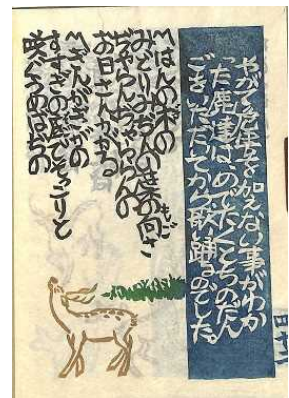 やがて危害を加えない事がわか
った鹿達はめでたくとちのだん
ごをいただいてから歌い踊るのでした。
〽はんの木の
みどりみぢんの葉の向さ
もご
ぢゃらんぢゃららんの
お日さんかがる
〽ぎんがぎがの
すすぎの底でそっこりと
咲ぐうめばぢの